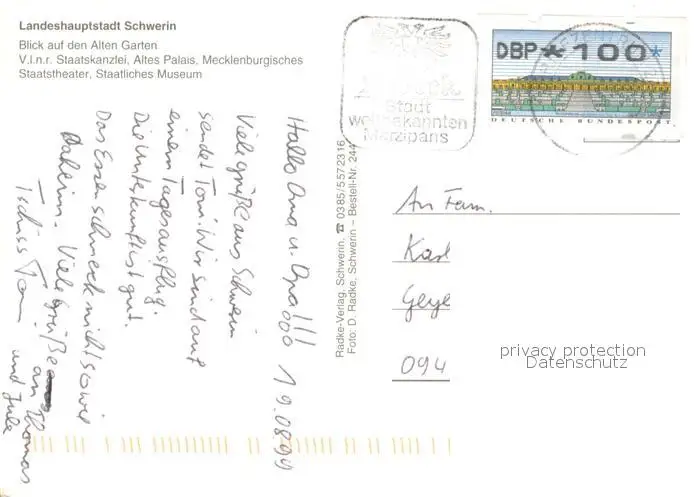 Landeshauptstadt Schwerin
Blick auf den Alten Garten
V.l.n.r. Staatskanzlei, Altes Palais, Mecklenburgisches
Staatstheater, Staatliches Museum
Stadt
weltbekannten
Marzipans
DBP * 100 *
DEUTSCHE BUNDESPOST
Hallo Oma u. Opa!!! 19.08.99
Viele grüße aus Schwerin
sendet Tom. Wir sind auf
einem Tagesausflug.
Die Unterkunft ist gut.
Das Essen schmeckt nicht so wie
Daheim. Viele grüße an Thomas
und Jule
Tschüss Tom
Radke-Verlag, Schwerin, ☎ 0385/5572316
Foto: D. Radke, Schwerin – Bestell-Nr. 244
An Fam.
Karl
Geye
094
privacy protection
Datenschutz